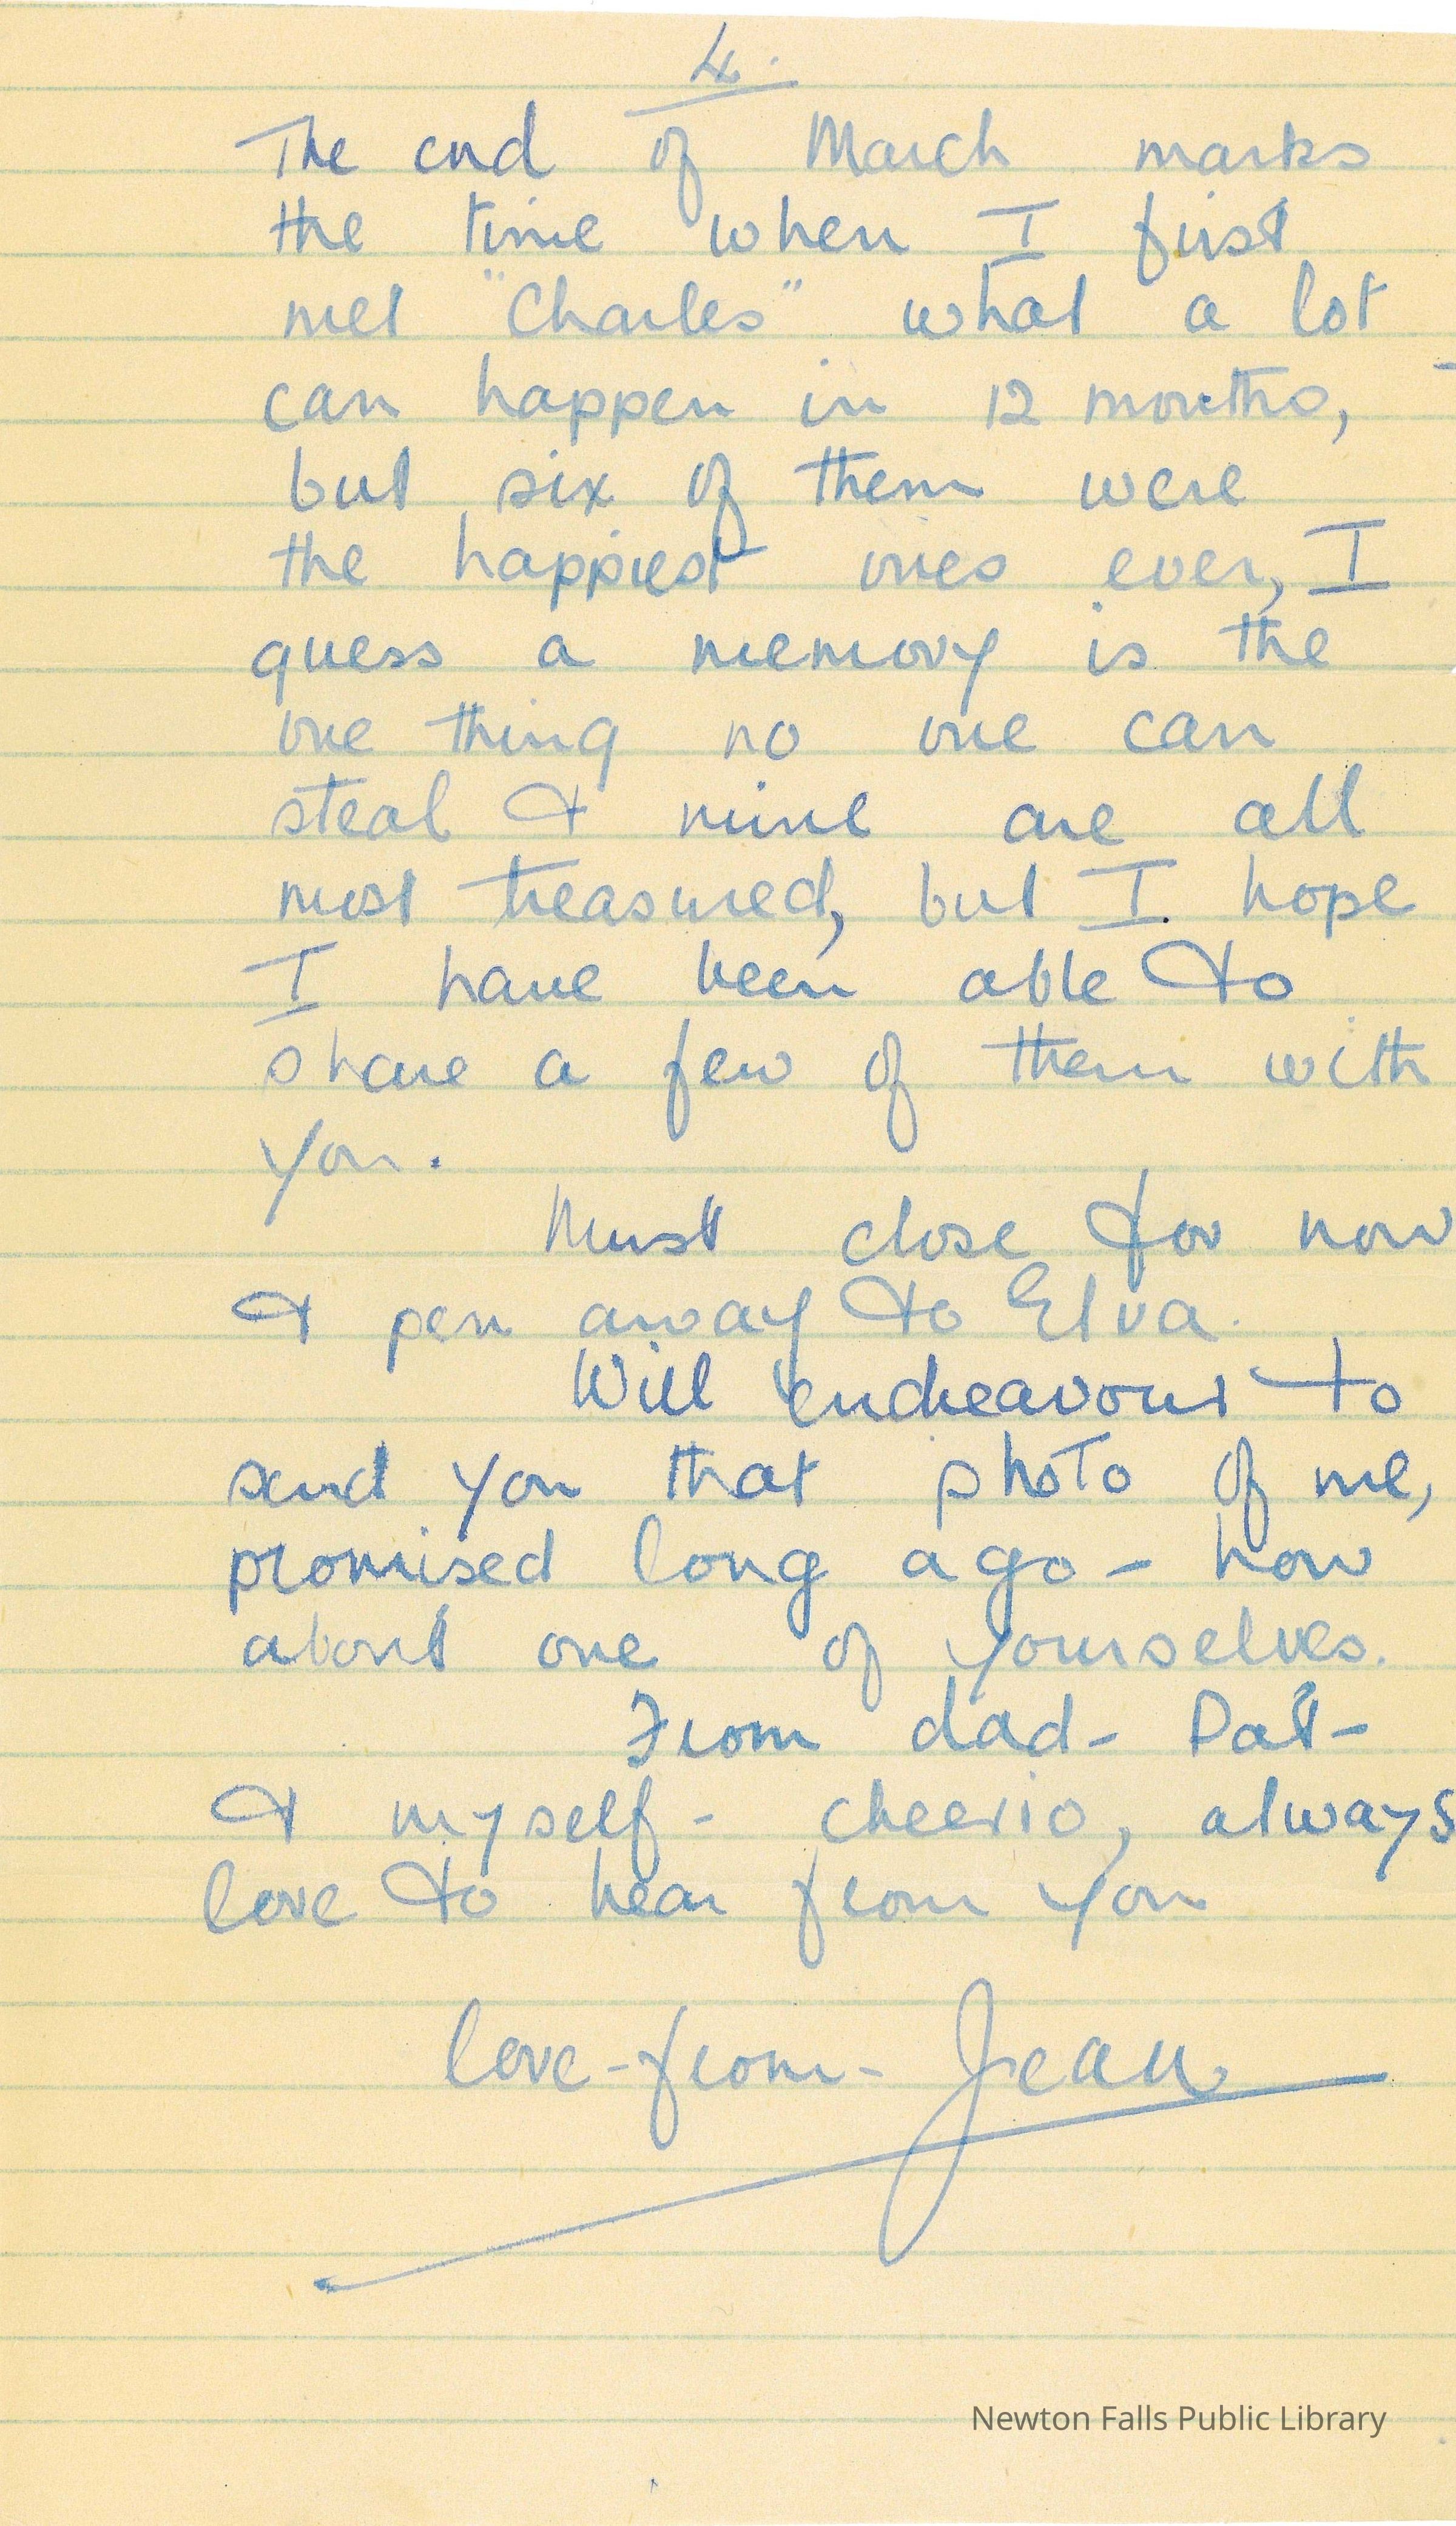 4.
The end of March marks
the time when I first
met "Charles" what a lot
can happen in 12 months,
but six of them were
the happiest ones ever, I
guess a memory is the
one thing no one can
steal & mine are all
most treasured, but I hope
I have been able to
share a few of them with
you.
Must close for now
& pen away to Elva.
Will endeavour to
send you that photo of me,
promised long ago - how
about one of yourselves.
From dad - Pat -
& myself - cheerio, always
love to hear from you
love - from - Jean
Newton Falls Public Library